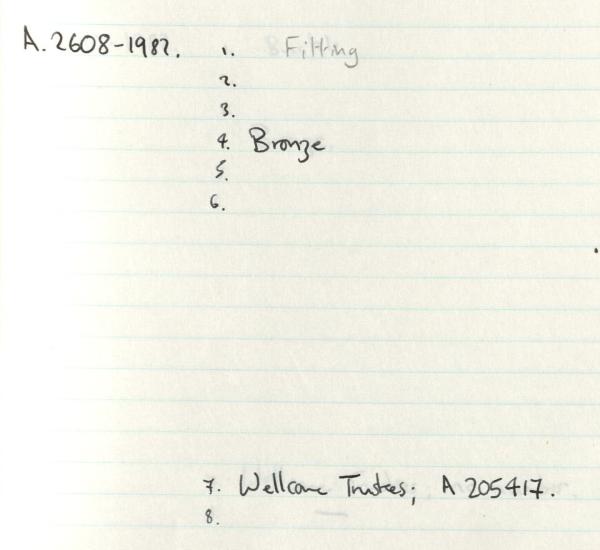 A.2608-1982. 1. Fitting
2.
3.
4. Bronze
5.
6.
7. Wellcome Trustees; A 205417.
8.